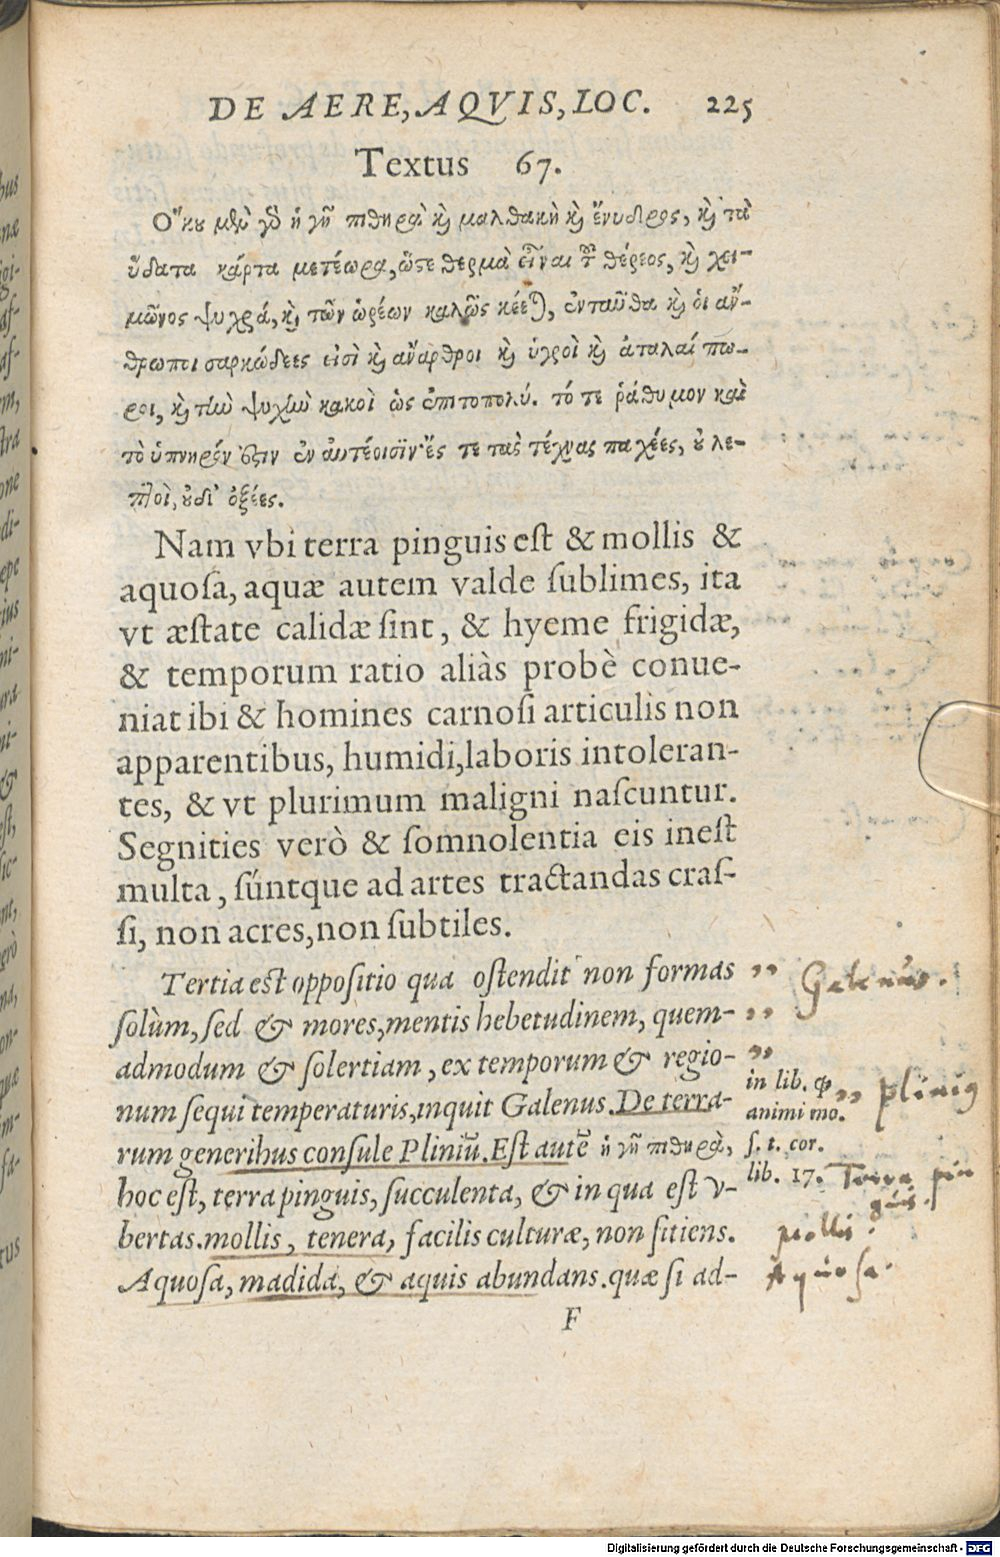 DE AERE, AQVIS, LOC. 225
Textus 67.
Ὅκου μὲν γὸ ἡ γῆ πιθηρὰ κỳ μαλθακὴ κỳ ἔνυδρος, κỳ τὰ
ὕδατα κάρτα μετέωρα, ὥστε θερμὰ εἶναι τ͂ θέρεος, κỳ χει-
μῶνος ψυχρά, κỳ τῶν ὡρέων καλῶς κέε), ἐνταῦθα κỳ ὁι ἄν-
θρωποι σαρκώδεες εἰσὶ κỳ ἄναρθροι κỳ ὑγροὶ κỳ ἀταλαίπω-
ροι, κỳ τὴν ψυχὴν κακοὶ ὡς ἐπιτοπολύ. τό τε ῥάθυμον καὶ
τὸ ὑπνηρόν ἔστιν ἐν ἀυτέοισϊν· ἔς τε τὰς τέχνας παχέες, ȣ λε-
πτοὶ, ȣδ᾽ ὀξέες.
Nam vbi terra pinguis eſt & mollis &
aquoſa, aquæ autem valde ſublimes, ita
vt æſtate calidæ ſint, & hyeme frigidæ,
& temporum ratio aliàs probè conue-
niat ibi & homines carnoſi articulis non
apparentibus, humidi, laboris intoleran-
tes, & vt plurimum maligni naſcuntur.
Segnities verò & ſomnolentia eis ineſt
multa, ſúntque ad artes tractandas craſ-
ſi, non acres, non ſubtiles.
Tertia eſt oppoſitio qua oſtendit non formas ,, Galenus.
ſolùm, ſed & mores, mentis hebetudinem, quem- ,,
admodum & ſolertiam, ex temporum & regio- ,,
num ſequi temperaturis, inquit Galenus. De terra- in lib. ꝙ ,, plinius
animi mo.
rum generibus conſule Pliniũ. Eſt autẽ ἡ γῆ πιθηρὰ, ſ. t. cor.
hoc eſt, terra pinguis, ſucculenta, & in qua eſt v- lib. 17. Terra pin
guis.
bertas. mollis, tenera, facilis culturæ, non ſitiens. mollis
Aquoſa, madida, & aquis abundans. quæ ſi ad- Aquosa.
F
Digitalisierung gefördert durch die Deutsche Forschungsgemeinschaft - DFG